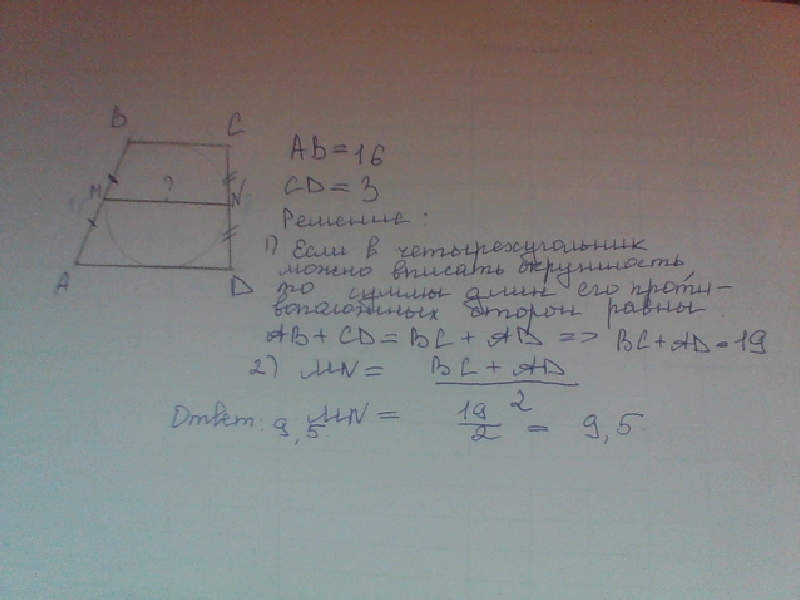 B
C
M
?
N
A
D
AB = 16
CD = 3
Решение:
1) Если в четырехугольник
можно вписать окружность
то суммы длин его проти-
воположных сторон равны
AB + CD = BC + AD => BC + AD = 19
2) MN = BC + AD
2
Ответ: 9,5. MN = 19/2 = 9,5